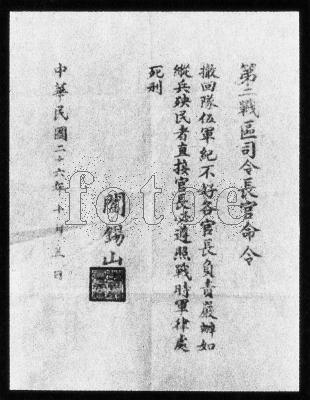 第二戰區司令長官命令
撤回隊伍軍紀不好各官長負責嚴辦如
縱兵殃民者直接官長應遵照戰時軍律處
死刑
閻錫山
中華民國二十六年十月三日
fotoe